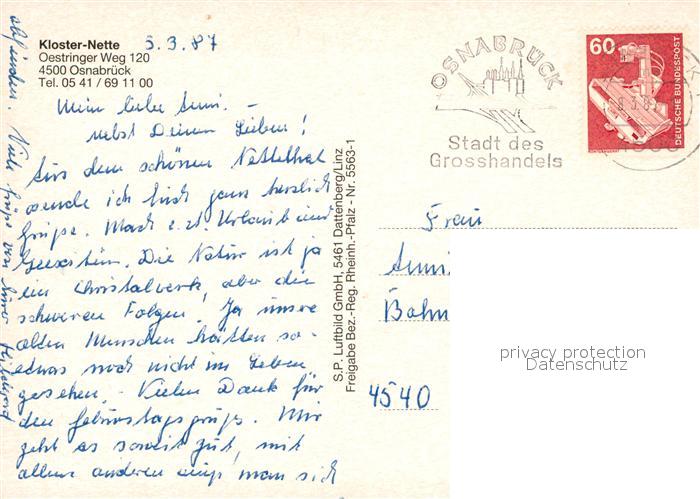 Kloster-Nette
Oestringer Weg 120
4500 Osnabrück
Tel. 05 41 / 69 11 00
5.3.87
Mein liebe Anni. -
nebst Deinen Lieben!
Aus dem schönen Nettethal
sende ich Euch ganz herzlich
Grüße. Mach z. Zt. Urlaub und
Exerzitien. Die Natur ist ja
ein Christalwerk, aber die
schweren Folgen! Ja unsre
alten Menschen hätten so-
etwas noch nicht im Leben
gesehen. - Vielen Dank für
den Geburtstagsgruß. Mir
geht es soweit gut, mit
allem anderen muß man sich
abfinden. Viele Grüße von Eurer
OSNABRÜCK
Stadt des
Grosshandels
60
DEUTSCHE BUNDESPOST
S.P. Luftbild GmbH, 5461 Dattenberg/Linz
Freigabe Bez.-Reg. Rheinh.-Pfalz - Nr. 5563-1
Frau
Anni
Bahn
4540
privacy protection
Datenschutz